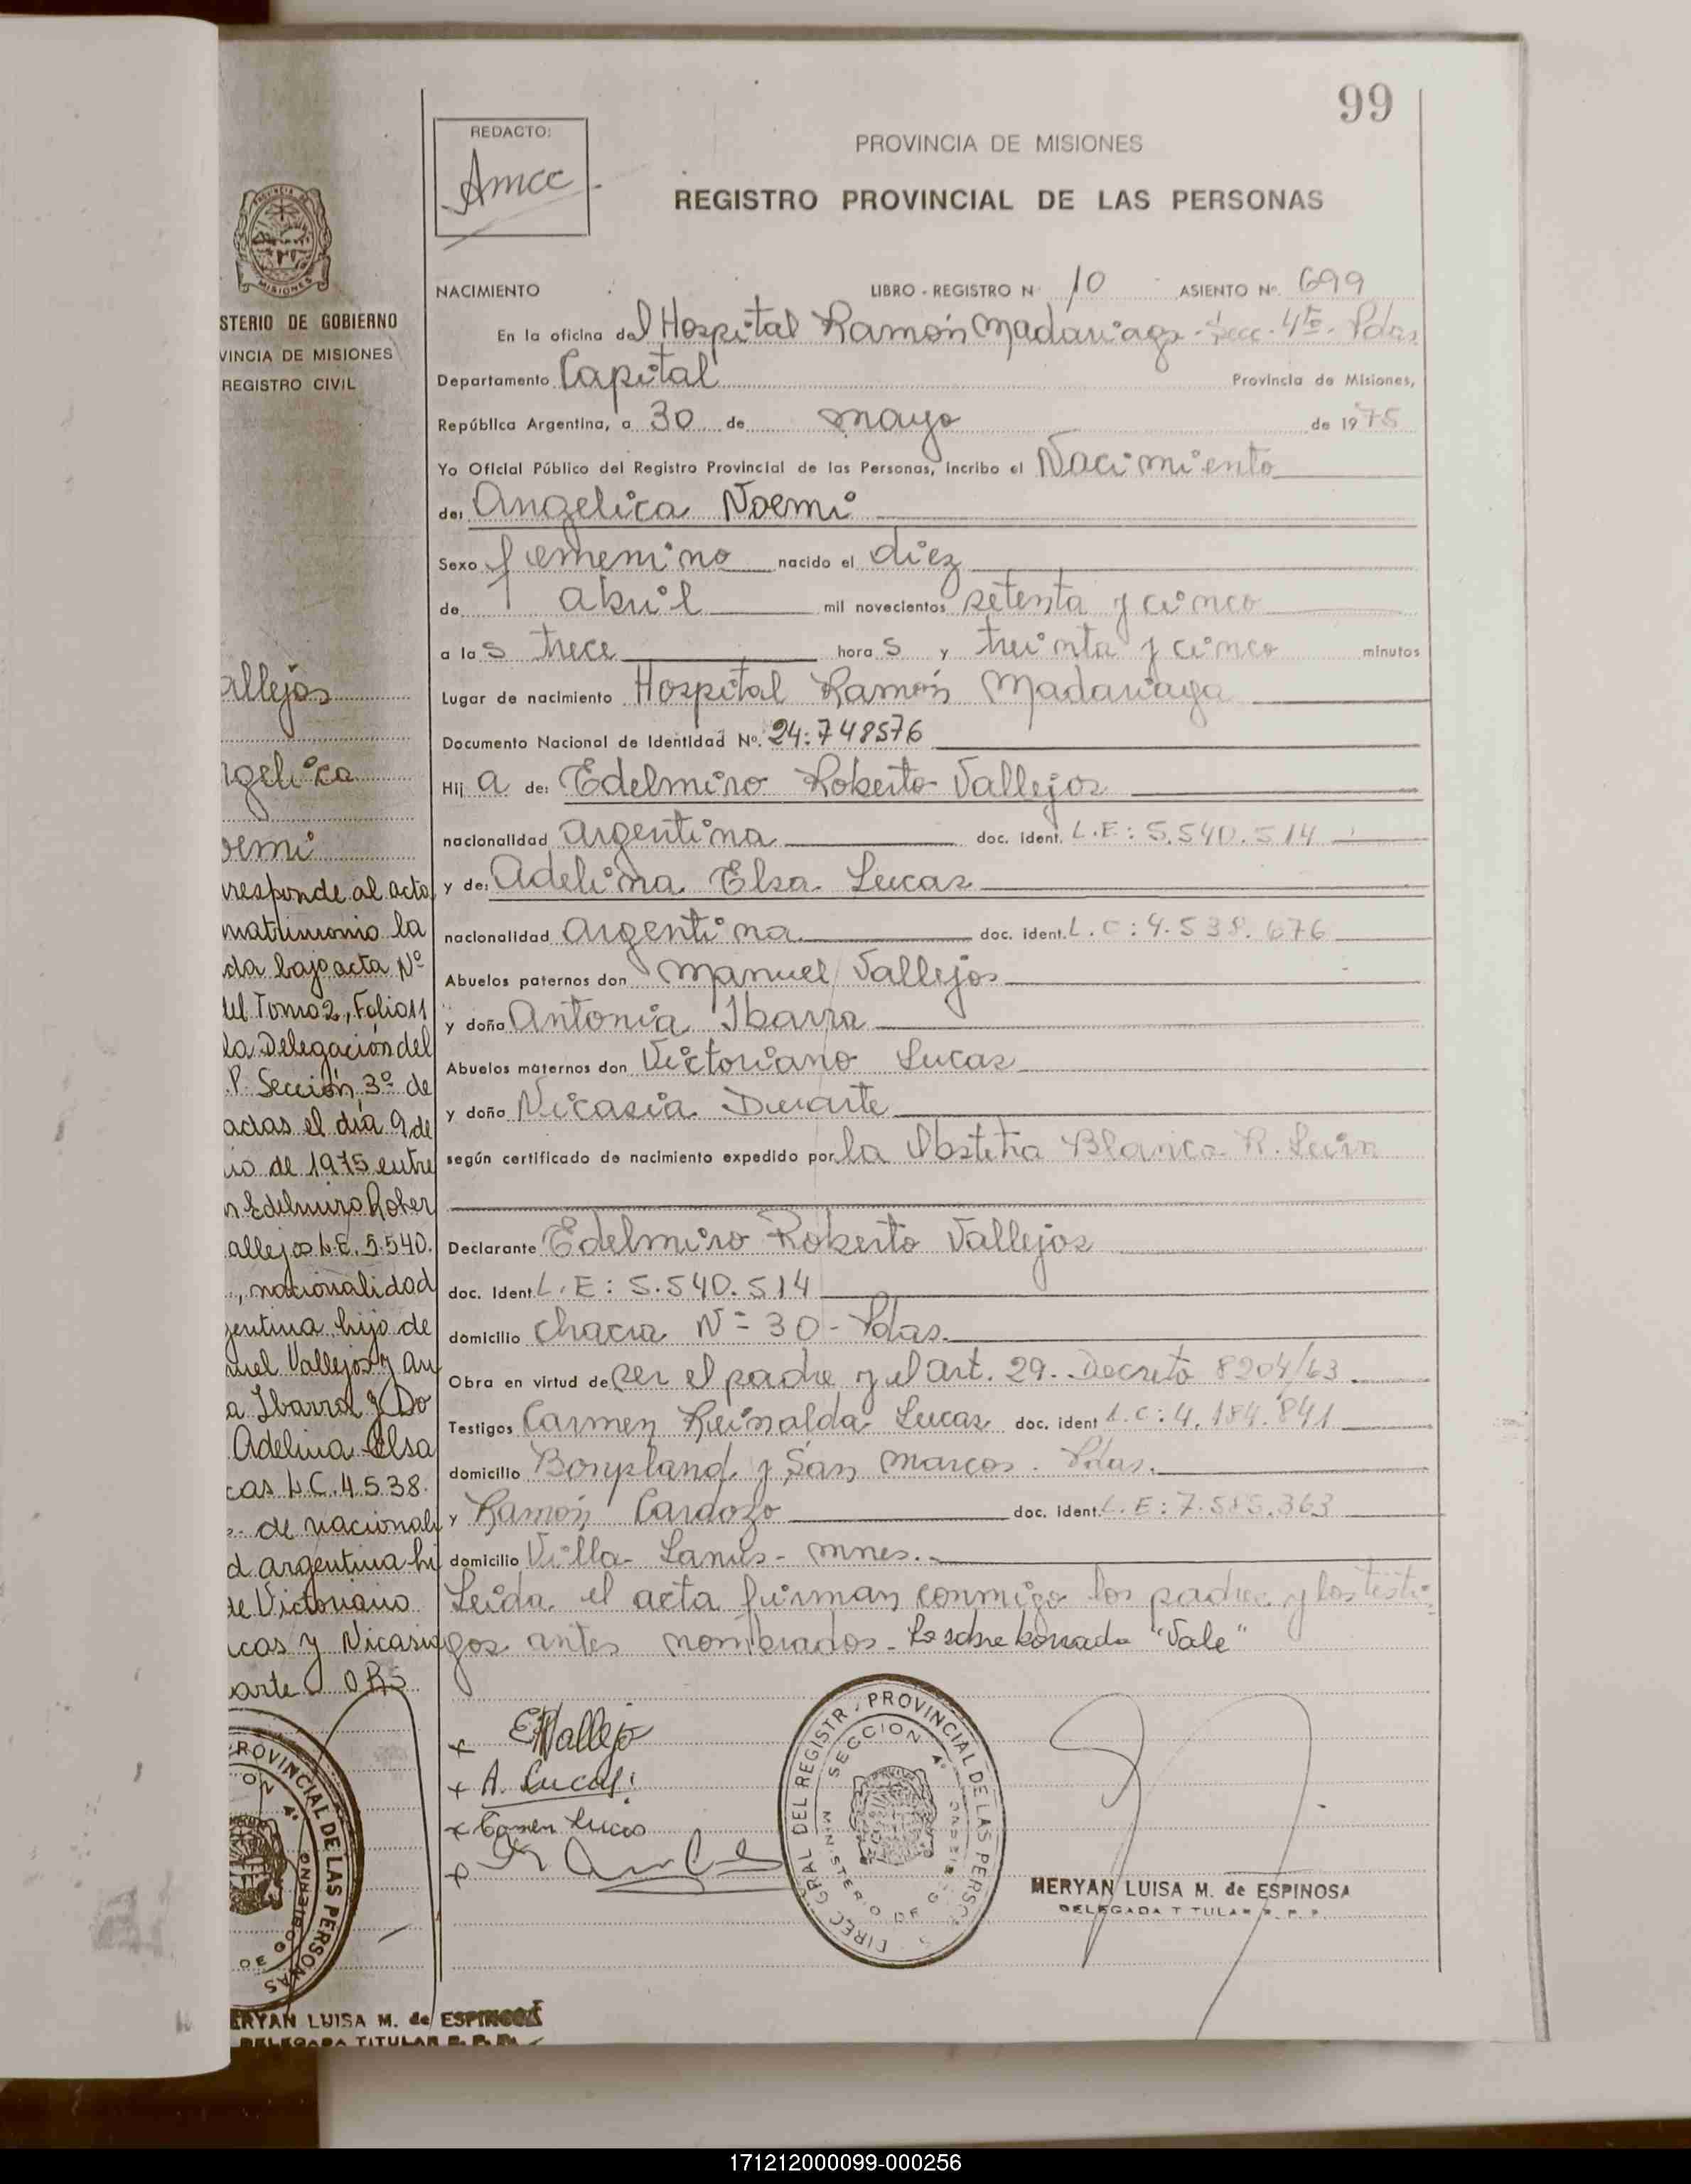 99
REDACTO:
Amcc
PROVINCIA DE MISIONES
REGISTRO PROVINCIAL DE LAS PERSONAS
NACIMIENTO LIBRO - REGISTRO Nº 10 ASIENTO Nº. 699
En la oficina del Hospital Ramón Madariaga - Secc. 4ta. Pdas
Departamento Capital Provincia de Misiones,
República Argentina, a 30 de mayo de 1975
Yo Oficial Público del Registro Provincial de las Personas, incribo el Nacimiento
de: Angelica Noemi
Sexo femenino nacido el diez
de abril mil novecientos setenta y cinco
a las trece horas y treinta y cinco minutos
Lugar de nacimiento Hospital Ramón Madariaga
Documento Nacional de Identidad Nº. 24:748576
Hija de: Edelmiro Roberto Vallejos
nacionalidad argentina doc. ident. L.E: 5.540.514
y de: Adelina Elsa Lucas
nacionalidad argentina doc. ident. L.C: 4.538.676
Abuelos paternos don Manuel Vallejos
y doña Antonia Ibarra
Abuelos maternos don Victoriano Lucas
y doña Nicasia Duarte
según certificado de nacimiento expedido por la Obstetra Blanca R.
Declarante Edelmiro Roberto Vallejos
doc. Ident. L.E: 5.540.514
domicilio chacra Nº 30 - Pdas.
Obra en virtud de ser el padre y el art. 29. Decreto 8204/63
Testigos Carmen Reinalda Lucas doc. ident L.C: 4.184.841
domicilio Bonpland y San Marcos. Pdas.
y Ramón Cardozo doc. ident. L.E: 7.585.363
domicilio Villa Lanús - Mnes.
Leida el acta firman conmigo los padres y los testi-
gos antes nombrados - Lo sobre borrado "Vale"
x EVallejo
x A. Lucas
x Carmen Lucas
x
DIREC. GRAL DEL REGISTR. PROVINCIAL DE LAS PERSONAS
SECCION 4º
MINISTERIO DE GOBIERNO
MERYAN LUISA M. de ESPINOSA
DELEGADA TITULAR R. P. P.
PROVINCIA DE MISIONES
STERIO DE GOBIERNO
VINCIA DE MISIONES
REGISTRO CIVIL
allejos
ngelica
oemi
rresponde al acto
matrimonio la
da bajo acta Nº
del Tomo 2, Folio 11
la Delegación del
P. Sección 3º de
adas el día 9 de
io de 1975 entre
n Edelmiro Rober
allejos L.E. 5.540.
, nacionalidad
gentina hijo de
nuel Vallejos y An
a Ibarra y Do
Adelina Elsa
cas L.C. 4.538.
de nacionali
d argentina hi
de Victoriano
ucas y Nicasia
uarte
ROVINCIAL DE LAS PERSONAS
ON 4º
DE GOBIERNO
ERYAN LUISA M. de ESPINOSA
DELEGADA TITULAR R. P. P.
171212000099-000256